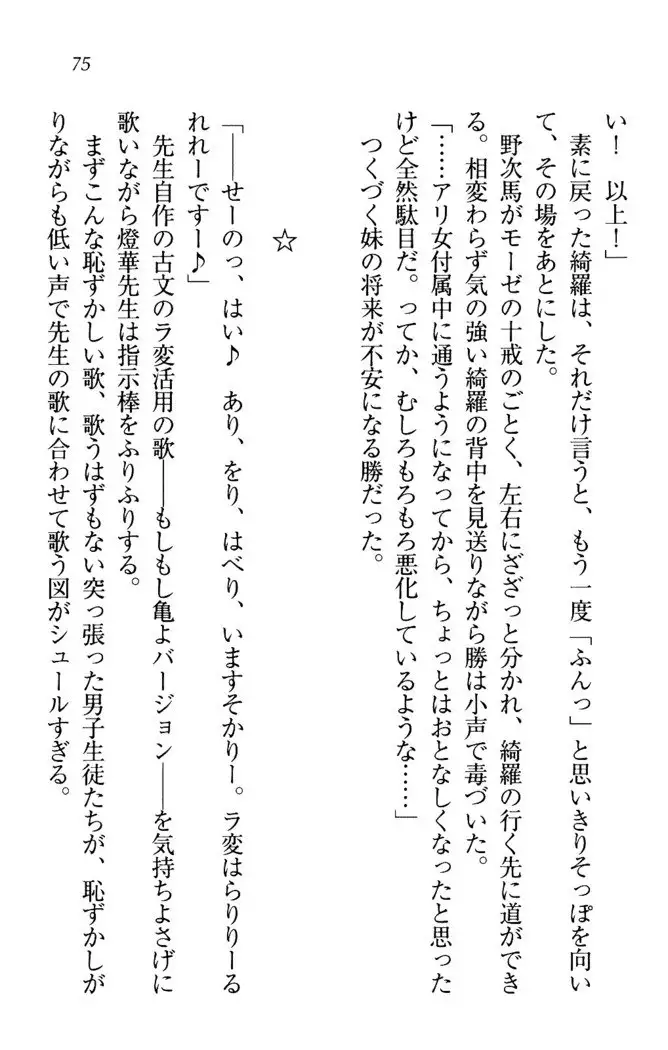 75
い！　以上！」
　素に戻った綺羅は、それだけ言うと、もう一度「ふんっ」と思いきりそっぽを向い
て、その場をあとにした。
　野次馬がモーゼの十戒のごとく、左右にざざっと分かれ、綺羅の行く先に道ができ
る。相変わらず気の強い綺羅の背中を見送りながら勝は小声で毒づいた。
「……アリ女付属中に通うようになってから、ちょっとはおとなしくなったと思った
けど全然駄目だ。ってか、むしろもろもろ悪化しているような……」
　つくづく妹の将来が不安になる勝だった。
☆
「――せーのっ、はい♪　あり、をり、はべり、いますそかりー。ラ変はらりりーる
れれーですー♪」
　先生自作の古文のラ変活用の歌――もしもし亀よバージョン――を気持ちよさげに
歌いながら燈華先生は指示棒をふりふりする。
　まずこんな恥ずかしい歌、歌うはずもない突っ張った男子生徒たちが、恥ずかしが
りながらも低い声で先生の歌に合わせて歌う図がシュールすぎる。